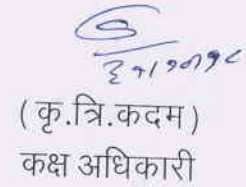 ( कृ.त्रि.कदम )
कक्ष अधिकारी